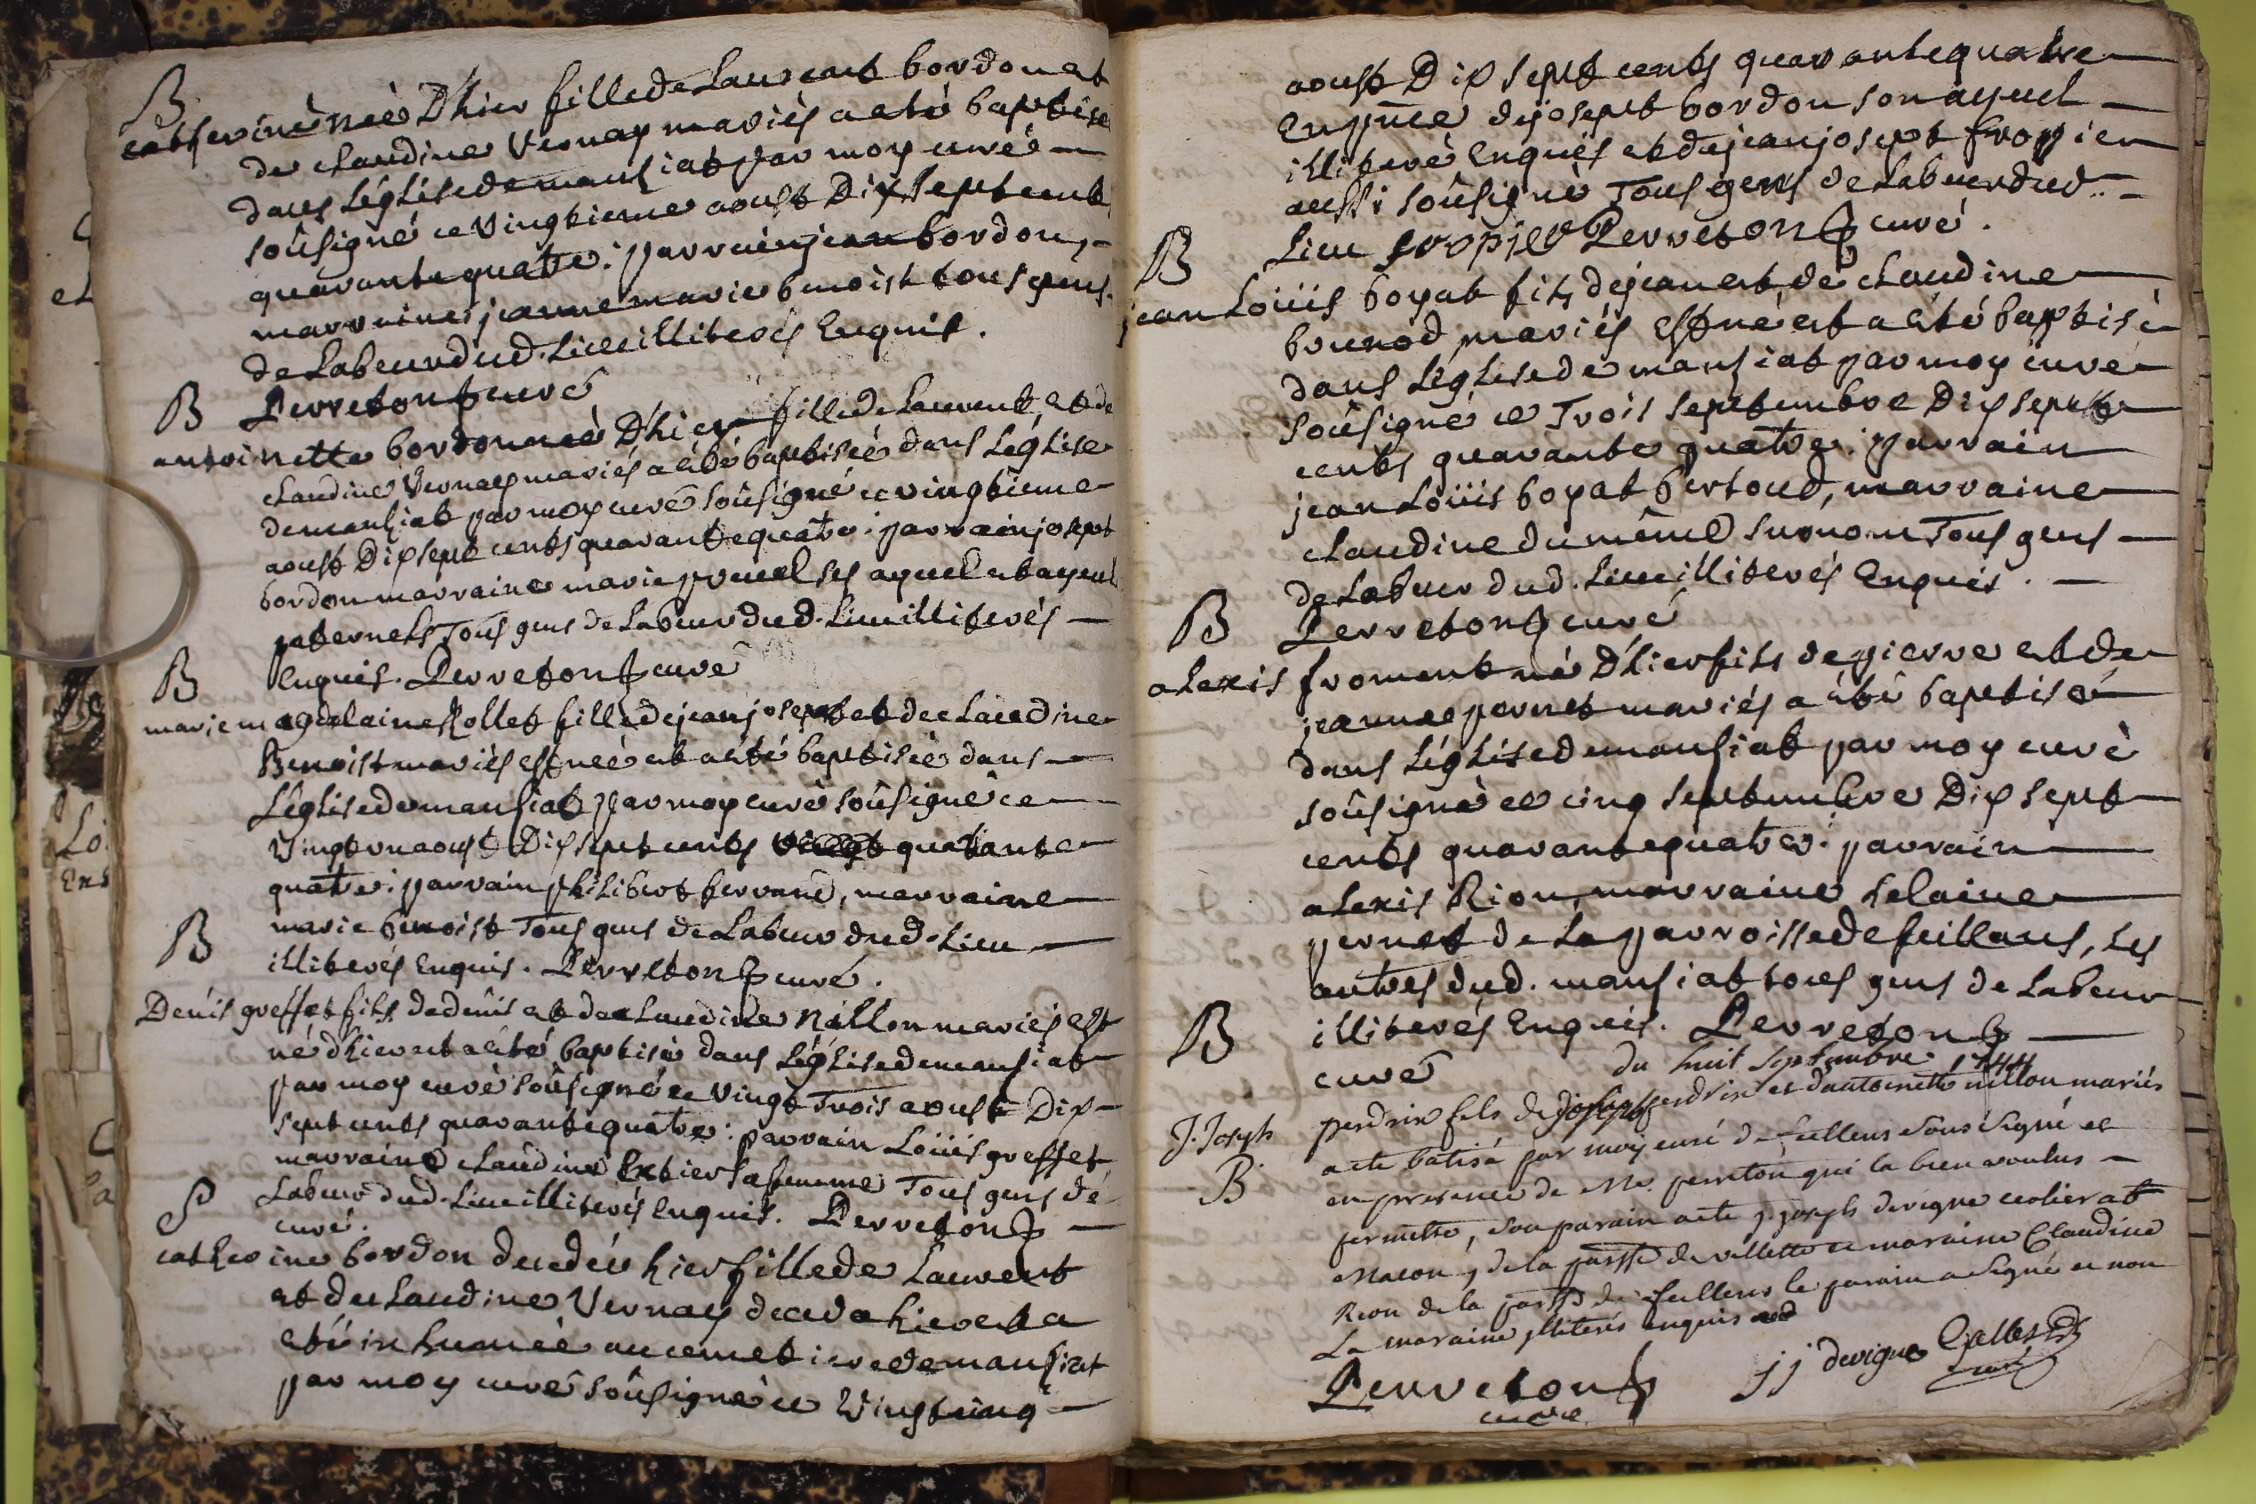 B
catherine neé D'hier fille de Laurent bordon et
de claudine Vernay mariés a eté baptisé
dans l'églisede mansiat par moy curé
soûsigné ce vingtieme aoust Dix sept cents
quarante quatre : parrain jean bordon,
marraine jeanne marie benoist tous gens
de Labeur dud. Lieu illiterés Enquis.
B Perreton curé
antoinette bordon neé D'hier fille de Laurent et de
claudine Vernay mariés a été baptiseé dans L'église
demansiat par moy curé soûsigné ce vingtieme
aoust Dix sept cents quarante quatre : parrain josept
bordon marraine marie pruel ses ayeul et ayeule
paternels Tous gens de Labeur dud. Lieu illiterés
B Enquis. Perreton curé
marie magdelaine Rollet fille de jean josept et de claudine
Benoist mariés est neé et a eté baptiseé dans
L'eglisede mansiat par moy curé soûsigné ce
Vingt un aoust Dix sept cents quarante
quatre : parrain philibert ferrand, marraine
B marie benoist Tous gens de Labeur dud. Lieu
illiterés Enquis. Perreton curé.
Denis greffet fils de denis et de claudine Nillon mariés est
né d'hier et a été baptisé dans L'églisedemansiat
par moy curé soûsigné ce vingt Trois aoust Dix
sept cents quarante quatre : parrain Loüis greffet
marraine claudine sa femme Tous gens de
S Labeur dud. Lieu illiterés Enquis. Perreton
curé.
catherine bordon decedeé hier fille de Laurent
et de claudine Vernay deceda hier et a
eté inhumeé au cemetiere demansiat
par moy curé soûsigné ce Vingt cinq
aoust Dix sept cents quarante quatre
En pñce de josept bordon son ayeul
illiteré Enquis et de jean josept froppier
aussi soûsigné Tous gens de Labeur dud.
B Lieu froppier Perreton curé.
jean Loüis boyat fils de jean et de claudine
brunod mariés est né et a été baptisé
dans L'églisede mansiat par moy curé
soûsigné ce Trois septembre Dix sept
cents quarante quatre : parrain
jean Loüis boyat bertoud, marraine
claudine du même surnom Tous gens
de Labeur dud. Lieu illiterés Enquis.
B Perreton curé
alexis froment né D'hier fils de pierre et de
jeanne pernet mariés a été baptisé
dans L'églisedemansiat par moy curé
soûsigné ce cinq septembre Dix sept
cents quarante quatre : parrain
alexis Rion, marraine helaine
pernet de La parroisse de feillans, Les
autres dud. mansiat tous gens de Labeur
B illiterés Enquis. Perreton
curé
du huit septembre 1744
J. Joseph perdrix fils de joseph perdrix et d'antoinette nillon mariés
B a eté batisé par moy curé de feillens sous signé et
en presence de Mr. perreton qui la bien voulus
permettre, son parain a eté j. joseph devigne ecolier at
Macon, de la parsse de villette et maraine Claudine
Rion de la parsse de feillens le parain a signé et non
La maraine jlliterés enquis
Perreton
curé
j j devigne